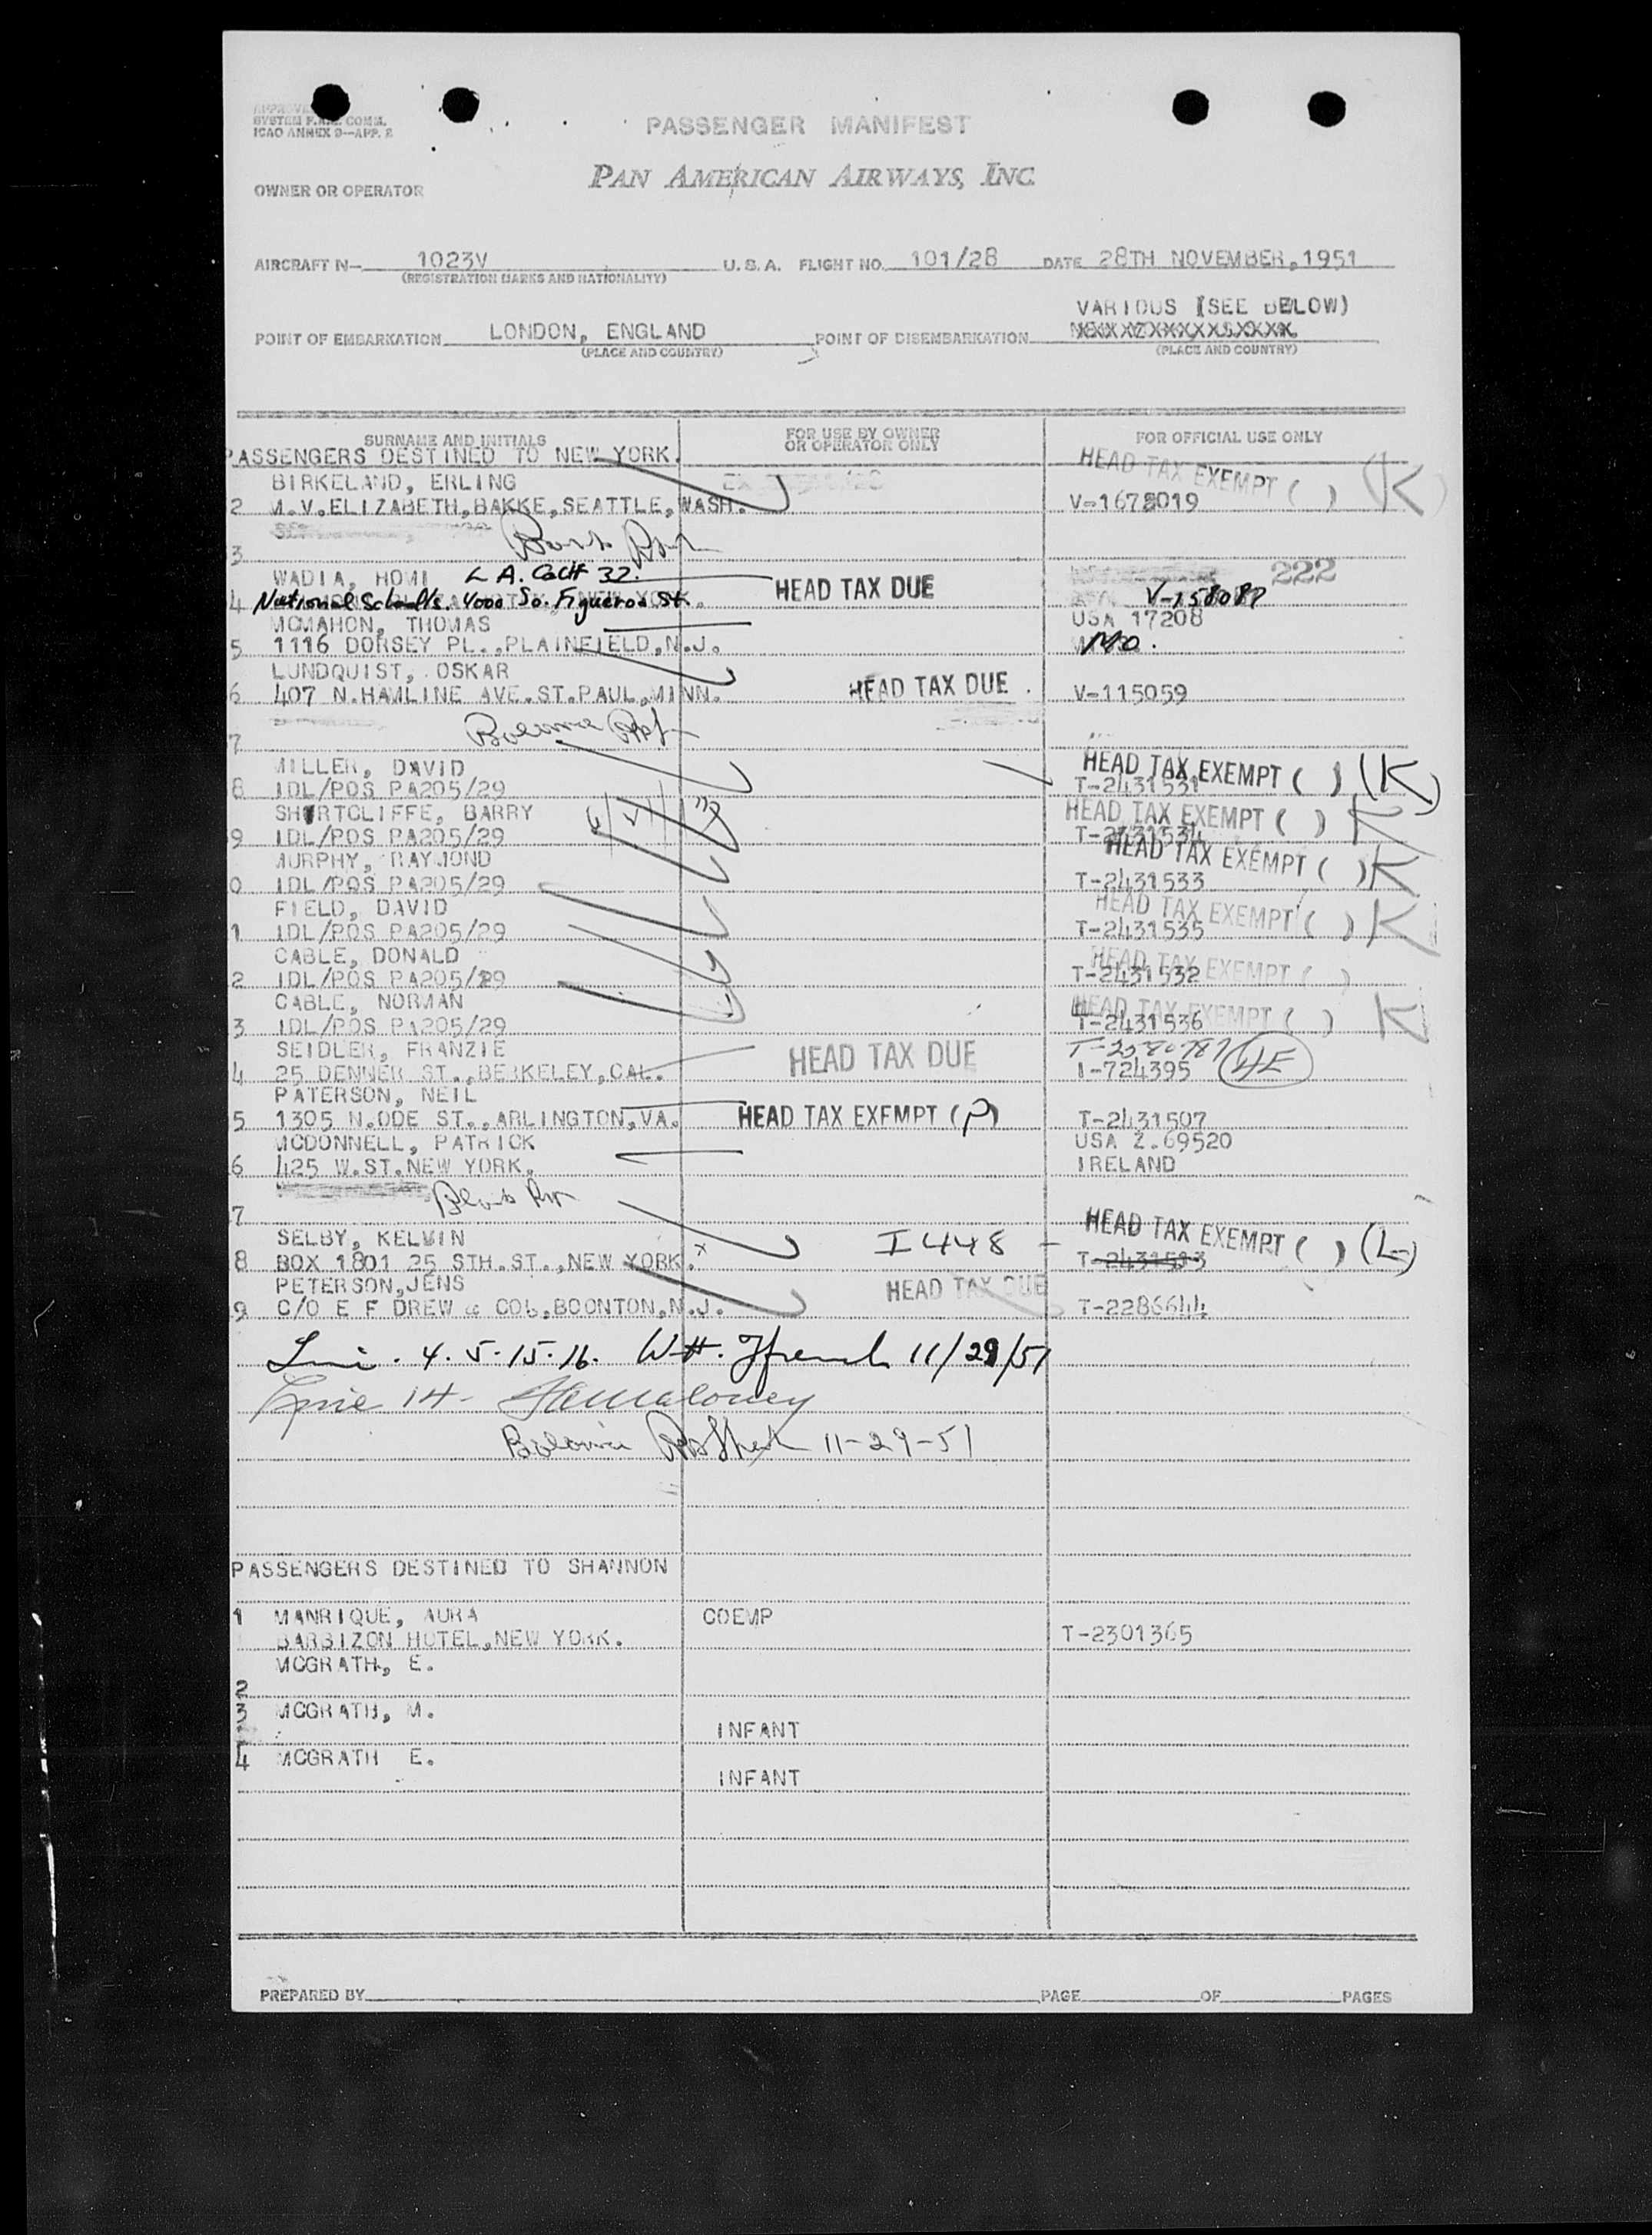 SYSTEM F.A.L. COMM.
ICAO ANNEX 9—APP. 2
PASSENGER MANIFEST
OWNER OR OPERATOR
PAN AMERICAN AIRWAYS, INC.
AIRCRAFT N— 1023V U.S.A. FLIGHT NO. 101/28 DATE 28TH NOVEMBER,1951
(REGISTRATION MARKS AND NATIONALITY)
VARIOUS (SEE BELOW)
POINT OF EMBARKATION LONDON, ENGLAND POINT OF DISEMBARKATION
(PLACE AND COUNTRY) (PLACE AND COUNTRY)
SURNAME AND INITIALS FOR USE BY OWNER OR OPERATOR ONLY FOR OFFICIAL USE ONLY
PASSENGERS DESTINED TO NEW YORK.
BIRKELAND, ERLING HEAD TAX EXEMPT ( ) (K)
2 M.V.ELIZABETH,BAKKE,SEATTLE,WASH. V-1678019
3
WADIA, HOMI L A. Calif 37. HEAD TAX DUE 222
4 National Schools. 4000 So. Figueroa St. V-158087
MCMAHON, THOMAS USA 17208
5 1116 DORSEY PL.,PLAINFIELD,N.J.
LUNDQUIST, OSKAR
6 407 N.HAMLINE AVE.ST.PAUL,MINN. HEAD TAX DUE V-115059
7
MILLER, DAVID HEAD TAX EXEMPT ( ) (K)
8 IDL/POS PA205/29 T-2431531
SHORTCLIFFE, BARRY HEAD TAX EXEMPT ( ) K
9 IDL/POS PA205/29 T-2431534
MURPHY, RAYMOND HEAD TAX EXEMPT ( ) K
0 IDL/POS PA205/29 T-2431533
FIELD, DAVID HEAD TAX EXEMPT ( ) K
1 IDL/POS PA205/29 T-2431535
CABLE, DONALD HEAD TAX EXEMPT ( )
2 IDL/POS PA205/29 T-2431532
CABLE, NORMAN HEAD TAX EXEMPT ( ) K
3 IDL/POS PA205/29 T-2431536
SEIDLER, FRANZIE HEAD TAX DUE T-2580787
4 25 DENNER ST.,BERKELEY,CAL. I-724395 4E
PATERSON, NEIL
5 1305 N.ODE ST.,ARLINGTON,VA. HEAD TAX EXEMPT (P) T-2431507
MCDONNELL, PATRICK USA Z.69520
6 425 W.ST.NEW YORK. IRELAND
7
SELBY, KELVIN I 448 - HEAD TAX EXEMPT ( ) (L)
8 BOX 1801 25 STH.ST.,NEW YORK. x T-2431513
PETERSON,JENS HEAD TAX DUE
9 C/O E F DREW & CO.,BOONTON,N.J. T-2286644
Line . 4. 5. 15. 16. 11/29/51
Line 14- Maloney
11-29-51
PASSENGERS DESTINED TO SHANNON
1 MANRIQUE, AURA COEMP
BARBIZON HOTEL,NEW YORK. T-2301365
MCGRATH, E.
2
3 MCGRATH, M.
INFANT
4 MCGRATH E.
INFANT
PREPARED BY PAGE OF PAGES